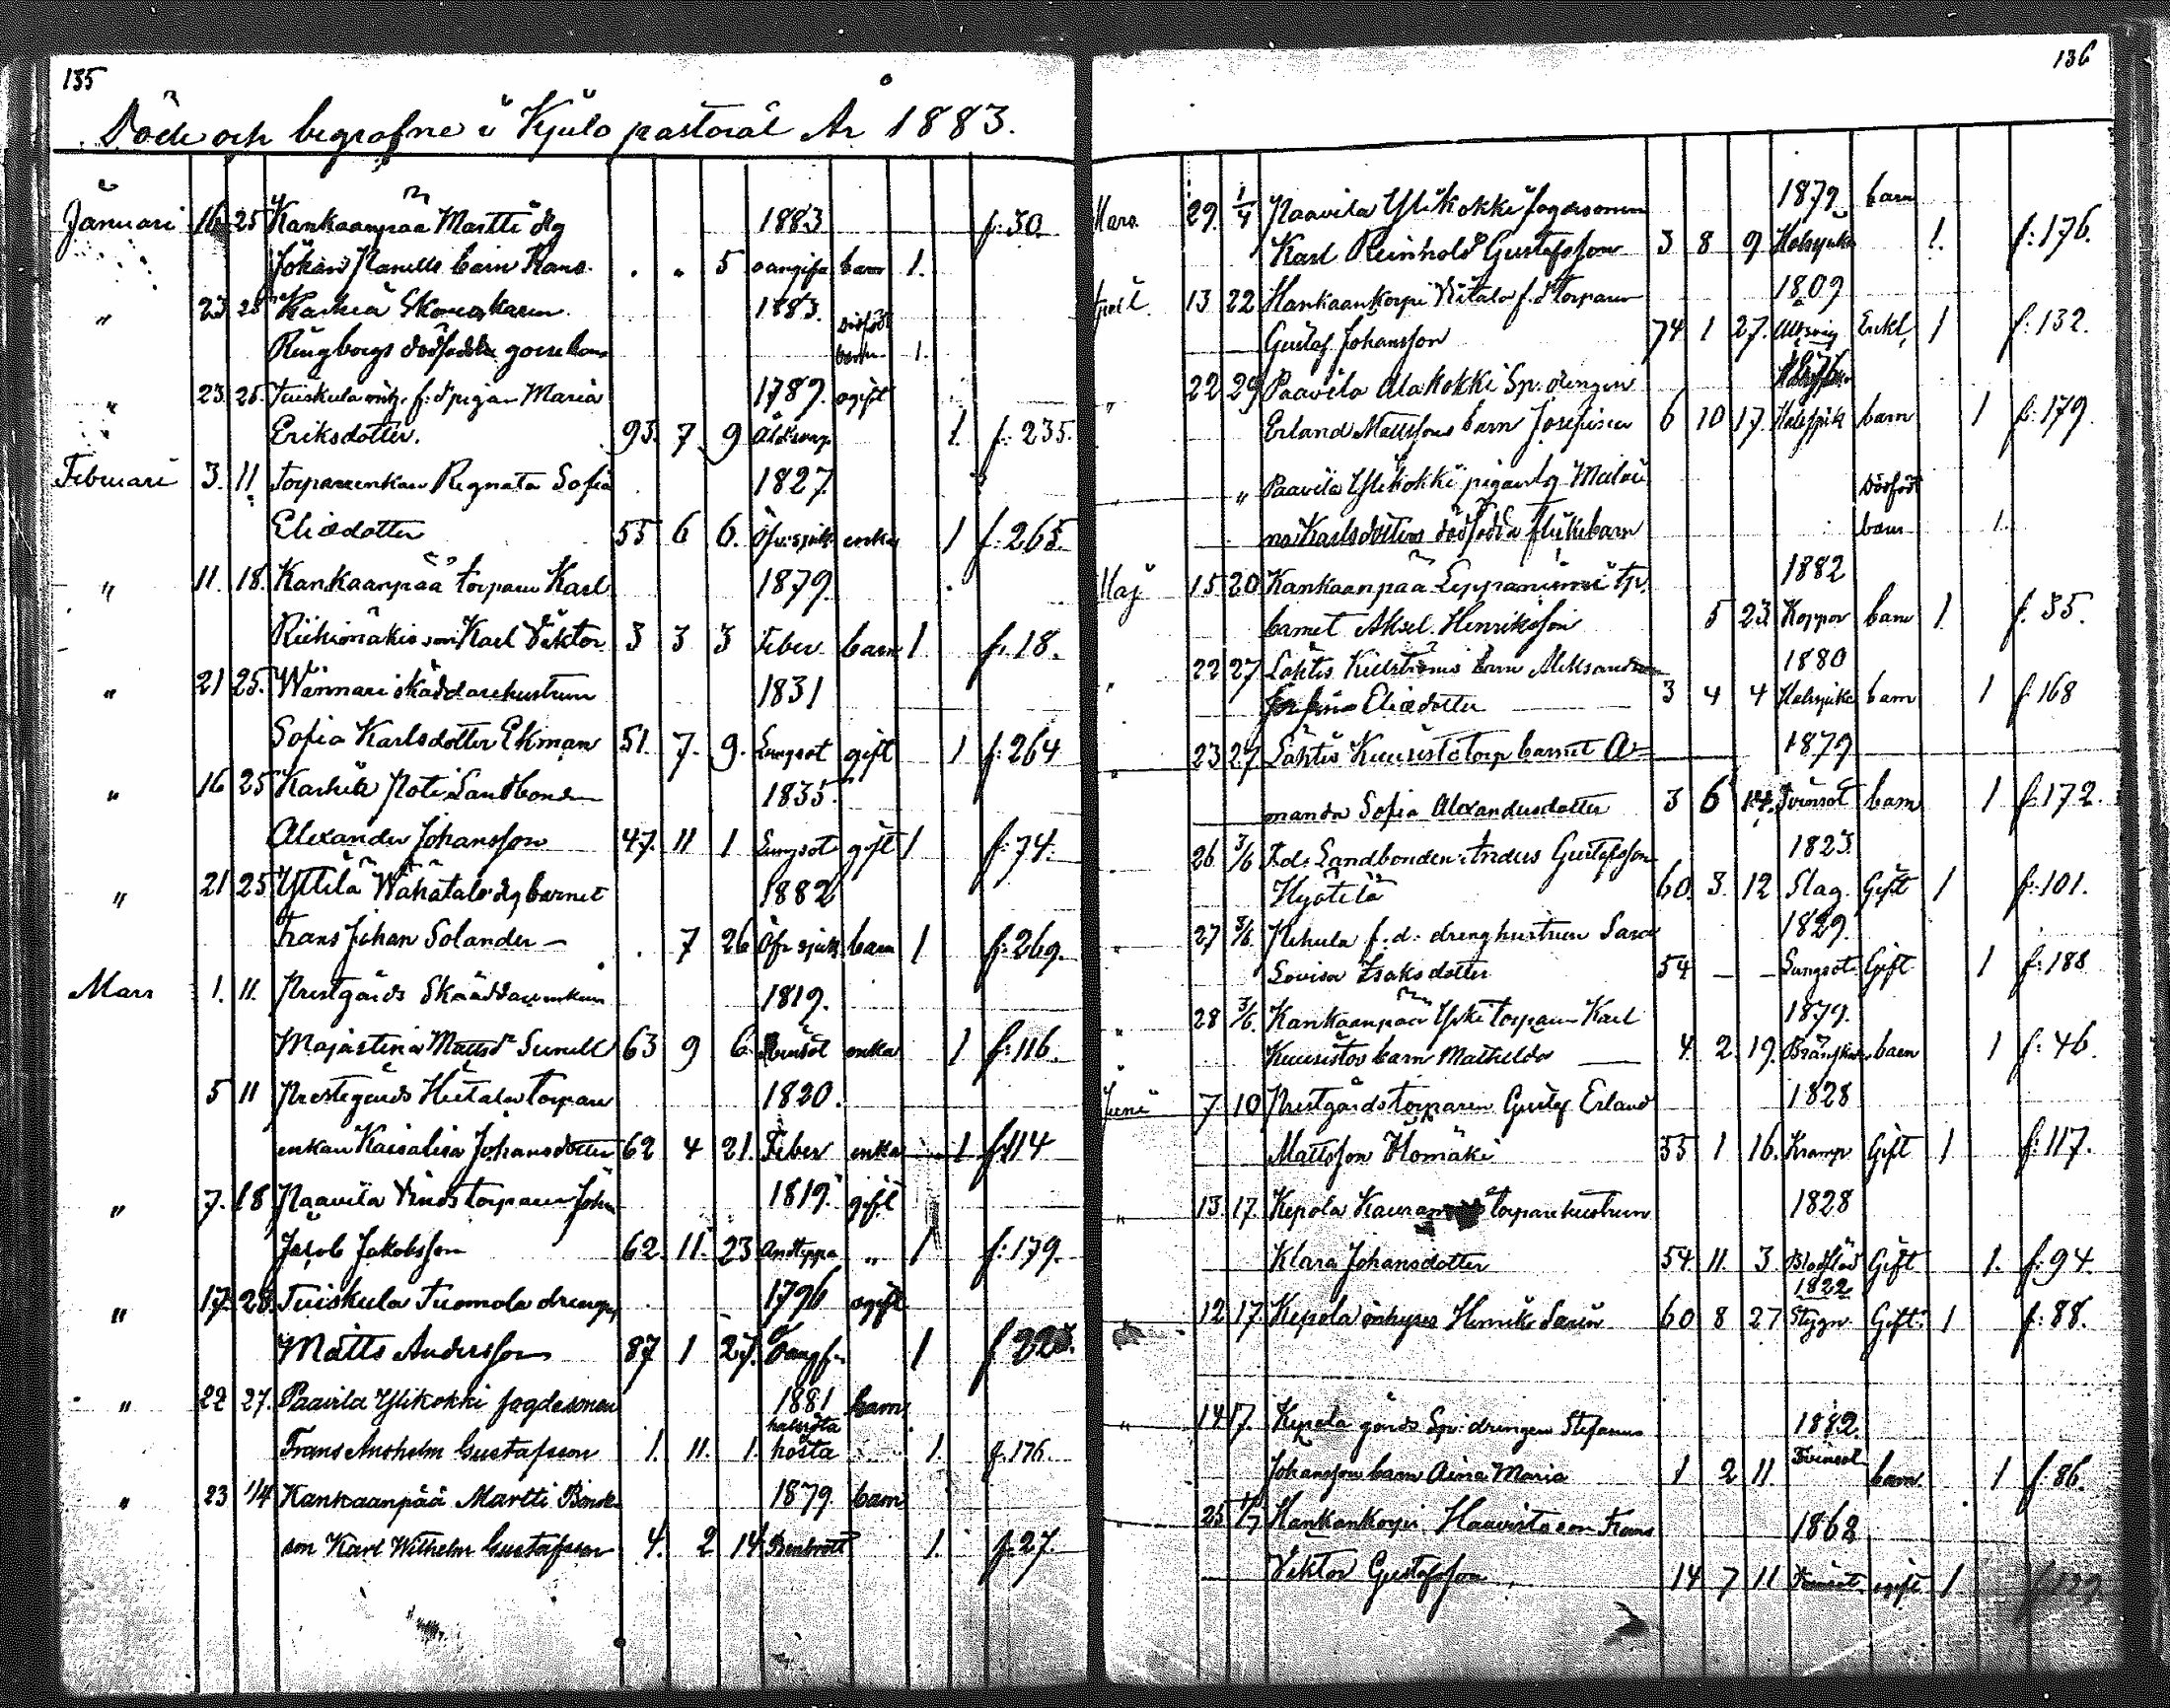 135
Döde och begrafne i Kjulo pastorat År 1883.
Januari 16 25 Kankaanpää Martti dg 1883 f. 30
Johan barn Frans . . 5 oangifv barn 1.
" 23 25 1883. Dödfödt
Ringborgs dödfödda gossebarn barn 1.
" 23. 25. Tuiskula inhy. f.d pigan Maria 1789. ogift
Eriksdotter. 93. 7 9 Åldersvag 1. f. 235.
Februari 3. 11 Torpareenkan Regnata Sofia 1827.
Eliedotter 55 6 6. Öfv. sjuk enka 1 f. 265.
" 11. 18. Kankaanpää torparn Karl 1879.
son Karl Viktor 3 3 3 Feber barn 1 f. 18.
" 21 25. Wännäri skräddarehustrun 1831
Sofia Karlsdotter Ekman 51. 7. 9. Lungsot gift 1 f. 264
" 16 25 Karhia Landbonden 1835.
Alexander Johansson 47. 11 1 Lungsot gift 1 f. 74.
" 21 25 Yttilä Wähätalo dg barnet 1882
Frans Johan Solander — . 7 26 Öfv sjuk barn 1 f. 269.
Mars 1. 11. Prestgårds Skräddareenkan 1819.
Majastina Mattsdr Sunell 63 9 6 enka 1 f. 116.
5 11 Prestgårds Hietala torpare 1820.
enkan Kaisalisa Johansdotter 62 4 21. Feber enka 1 f. 114
" 7. 18 Paavila torparen Johan 1819. gift
Jakob Jakobsson 62. 11. 23 Andteppa " 1 f. 179.
" 17. 28. Tuiskula Tuomola drengen 1796 ogift
Matts Andersson 87 1 27. 1 f.
" 22 27. Paavila Ylikokki fogdesonen 1881 barn
Frans Anshelm Gustafsson 1. 11. 1. hosta 1. f. 176.
" 23 1/4 Kankaanpää Martti 1879. barn
son Karl Wilhelm Gustafsson 4. 2 14. Benbrott 1. f. 27.
136
Mars 29. 1/4 Paavila Ylikokki fogdesonen 1879 barn
Karl Reinhold Gustafsson 3 8 9 Halssjuka 1. f. 176.
April 13 22 Kankaankorpi Uitalo f.d torparn 1809
Gustaf Johansson 74 1 27. Enkl. 1 f. 132.
" 22 29 Paavila Alakokki Sp. drengen
Erland Mattssons barn Josefina 6 10 17. barn 1 f. 179.
" " Paavila Ylikokki pigan Dödfödt
Karlsdotters dödfödda flickebarn barn 1.
Maj 15 20 Kankaanpää Leppäniemi tp. 1882
barnet Aksel Henriksson 5 23 Koppor barn 1 f. 35.
" 22 27 Lähtis barn Aleksandra 1880
Josefina Eliedotter 3 4 4 Halssjuka barn 1 f. 168
" 23 27 Lähtis Kuusisto torp barnet A= 1879
manda Sofia Alexandersdotter 3 6 14. Tvinsot barn 1 f. 172.
26 3/6 F.d. Landbonden Anders Gustafsson 1823.
60. 3. 12 Slag. Gift 1 f. 101.
" 27 3/6. Pehula f.d. drenghustrun Sara 1829.
Lovisa Isaksdotter 54 — — Lungsot Gift 1 f. 188
" 28 3/6. Kankaanpää Yski torparn Karl 1879.
Kuusistos barn Mathilda — 4. 2 19. barn 1 f. 46.
Juni 7 10 Prestgårds torparen Gustaf Erland 1828
Mattsson Ylomäki 55 1 16. Kramp Gift 1 f. 117.
" 13. 17. Kepola torparehustrun 1828
Klara Johansdotter 54. 11. 3 Gift 1. f. 94.
1822
12 17 Kepola inhyses Henrik Sarin 60 8 27 Stygn. Gift. 1 f. 88.
" 14 17. Kepola gårds Sp. drengen Stefanus 1882.
Johanssons barn Aina Maria 1 2 11. Tvinsot barn. 1 f. 86.
" 25 1/7 Kankankorpi Haavisto son Frans 1868
Viktor Gustafsson 14 7 11 ogift 1 f. 139